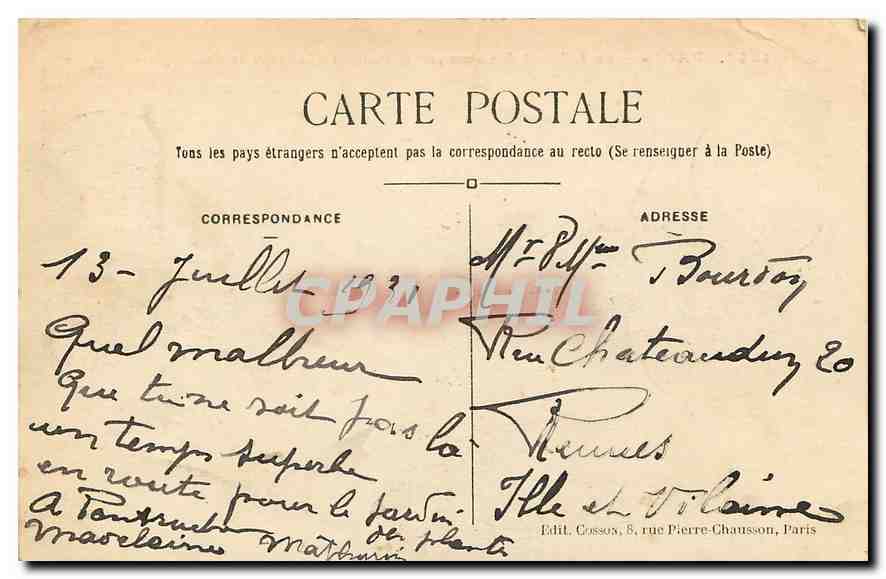 CARTE POSTALE
Tous les pays étrangers n'acceptent pas la correspondance au recto (Se renseigner à la Poste)
CORRESPONDANCE
13 - Juillet 1931
Quel malheur
Que tu ne soit pas là
un temps superbe
en route pour le Jardin
des plantes
A
Madelaine Mathurin
ADRESSE
Mr & Mme Bourdon
Rue Chateaudun 20
Rennes
Ille et Vilaine
Edit. Cosson, 8, rue Pierre-Chausson, Paris
CPAPHIL